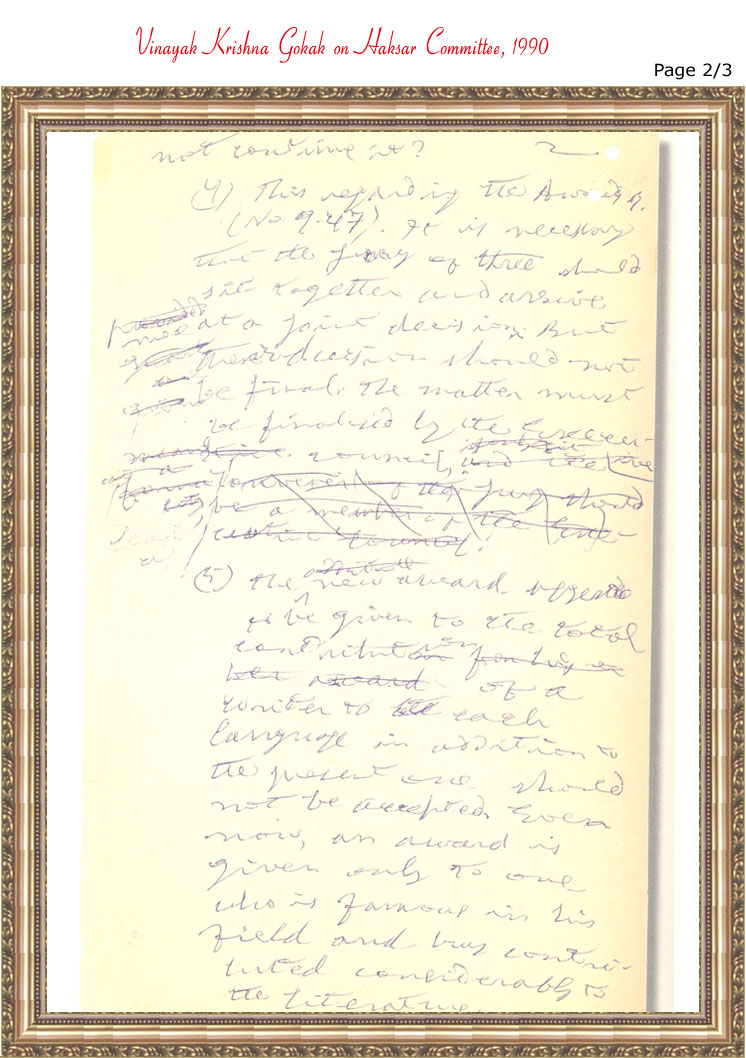 Vinayak Krishna Gokak on Haksar Committee, 1990
Page 2/3
not continue it? 2
(4) This regarding the Awards.
(No 9.47). It is necessary
that the jury of three should
sit together and arrive
at a joint decision. But
their decision should not
be final. The matter must
be finalised by the Execu-
tive
council, and the
However of the jury should
be a member of the Exe-
cutive Council.
(5) The new award suggested
to be given to the total
contribution for his or
her award of a
writer to each
language in addition to
the present one should
not be accepted. Even
now, an award is
given only to one
who is famous in his
field and has contri-
buted considerably to
the literature.